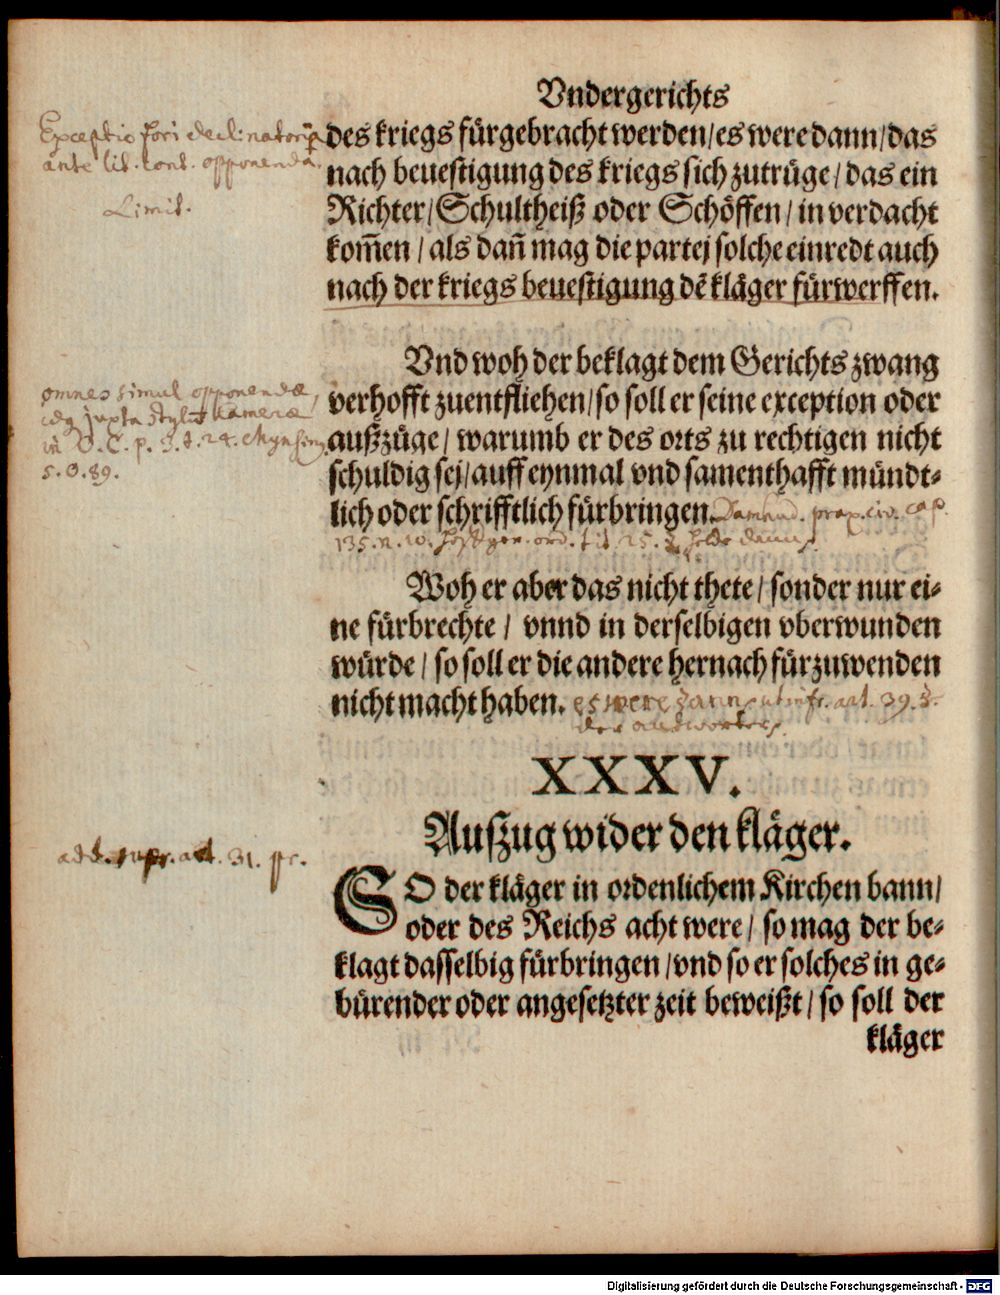 Vndergerichts
Exceptio fori declinatoria
ante lit. cont. opponenda.
Limit.
des kriegs fürgebracht werden/es were dann/das
nach beuestigung des kriegs sich zutrüge/das ein
Richter/Schultheiß oder Schöffen/in verdacht
kom̃en/als dañ mag die partej solche einredt auch
nach der kriegs beuestigung dẽ kläger fürwerffen.
Vnd woh der beklagt dem Gerichts zwang
verhofft zuentfliehen/so soll er seine exception oder
außzüge/warumb er des orts zu rechtigen nicht
schuldig sej/auff eynmal vnd samenthafft mündt-
lich oder schrifftlich fürbringen.
omnes simul opponendæ,
juxta stylũ Cameræ
O. C. p. 3. t. 24. Mynsing
5. O. 89.
prax. civ. cap.
135. n. 10. ord. tit. 25. §.
Woh er aber das nicht thete/sonder nur ei-
ne fürbrechte/vnnd in derselbigen vberwunden
würde/so soll er die andere hernach fürzuwenden
nicht macht haben.
es were dann ut infr. art. 39. §.
der
XXXV.
Außzug wider den kläger.
add. supr. art. 31. pr.
SO der kläger in ordenlichem Kirchen bann/
oder des Reichs acht were/so mag der be-
klagt dasselbig fürbringen/vnd so er solches in ge-
bürender oder angesetzter zeit beweißt/so soll der
kläger
Digitalisierung gefördert durch die Deutsche Forschungsgemeinschaft - DFG